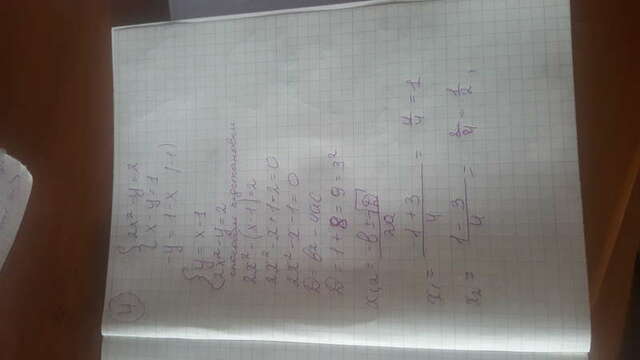 4
{ 2x² - y = 2
{ x - y = 1
-y = 1 - x (-1)
{ y = x - 1
2x² - y = 2
способом подстановки
2x² - (x - 1) = 2
2x² - x + 1 - 2 = 0
2x² - x - 1 = 0
D = b² - 4ac
D = 1 + 8 = 9 = 3²
x₁,₂ = (-b ± √D) / 2a
x₁ = (1 + 3) / 4 = 4/4 = 1
x₂ = (1 - 3) / 4 = 2/4 - 1/2,